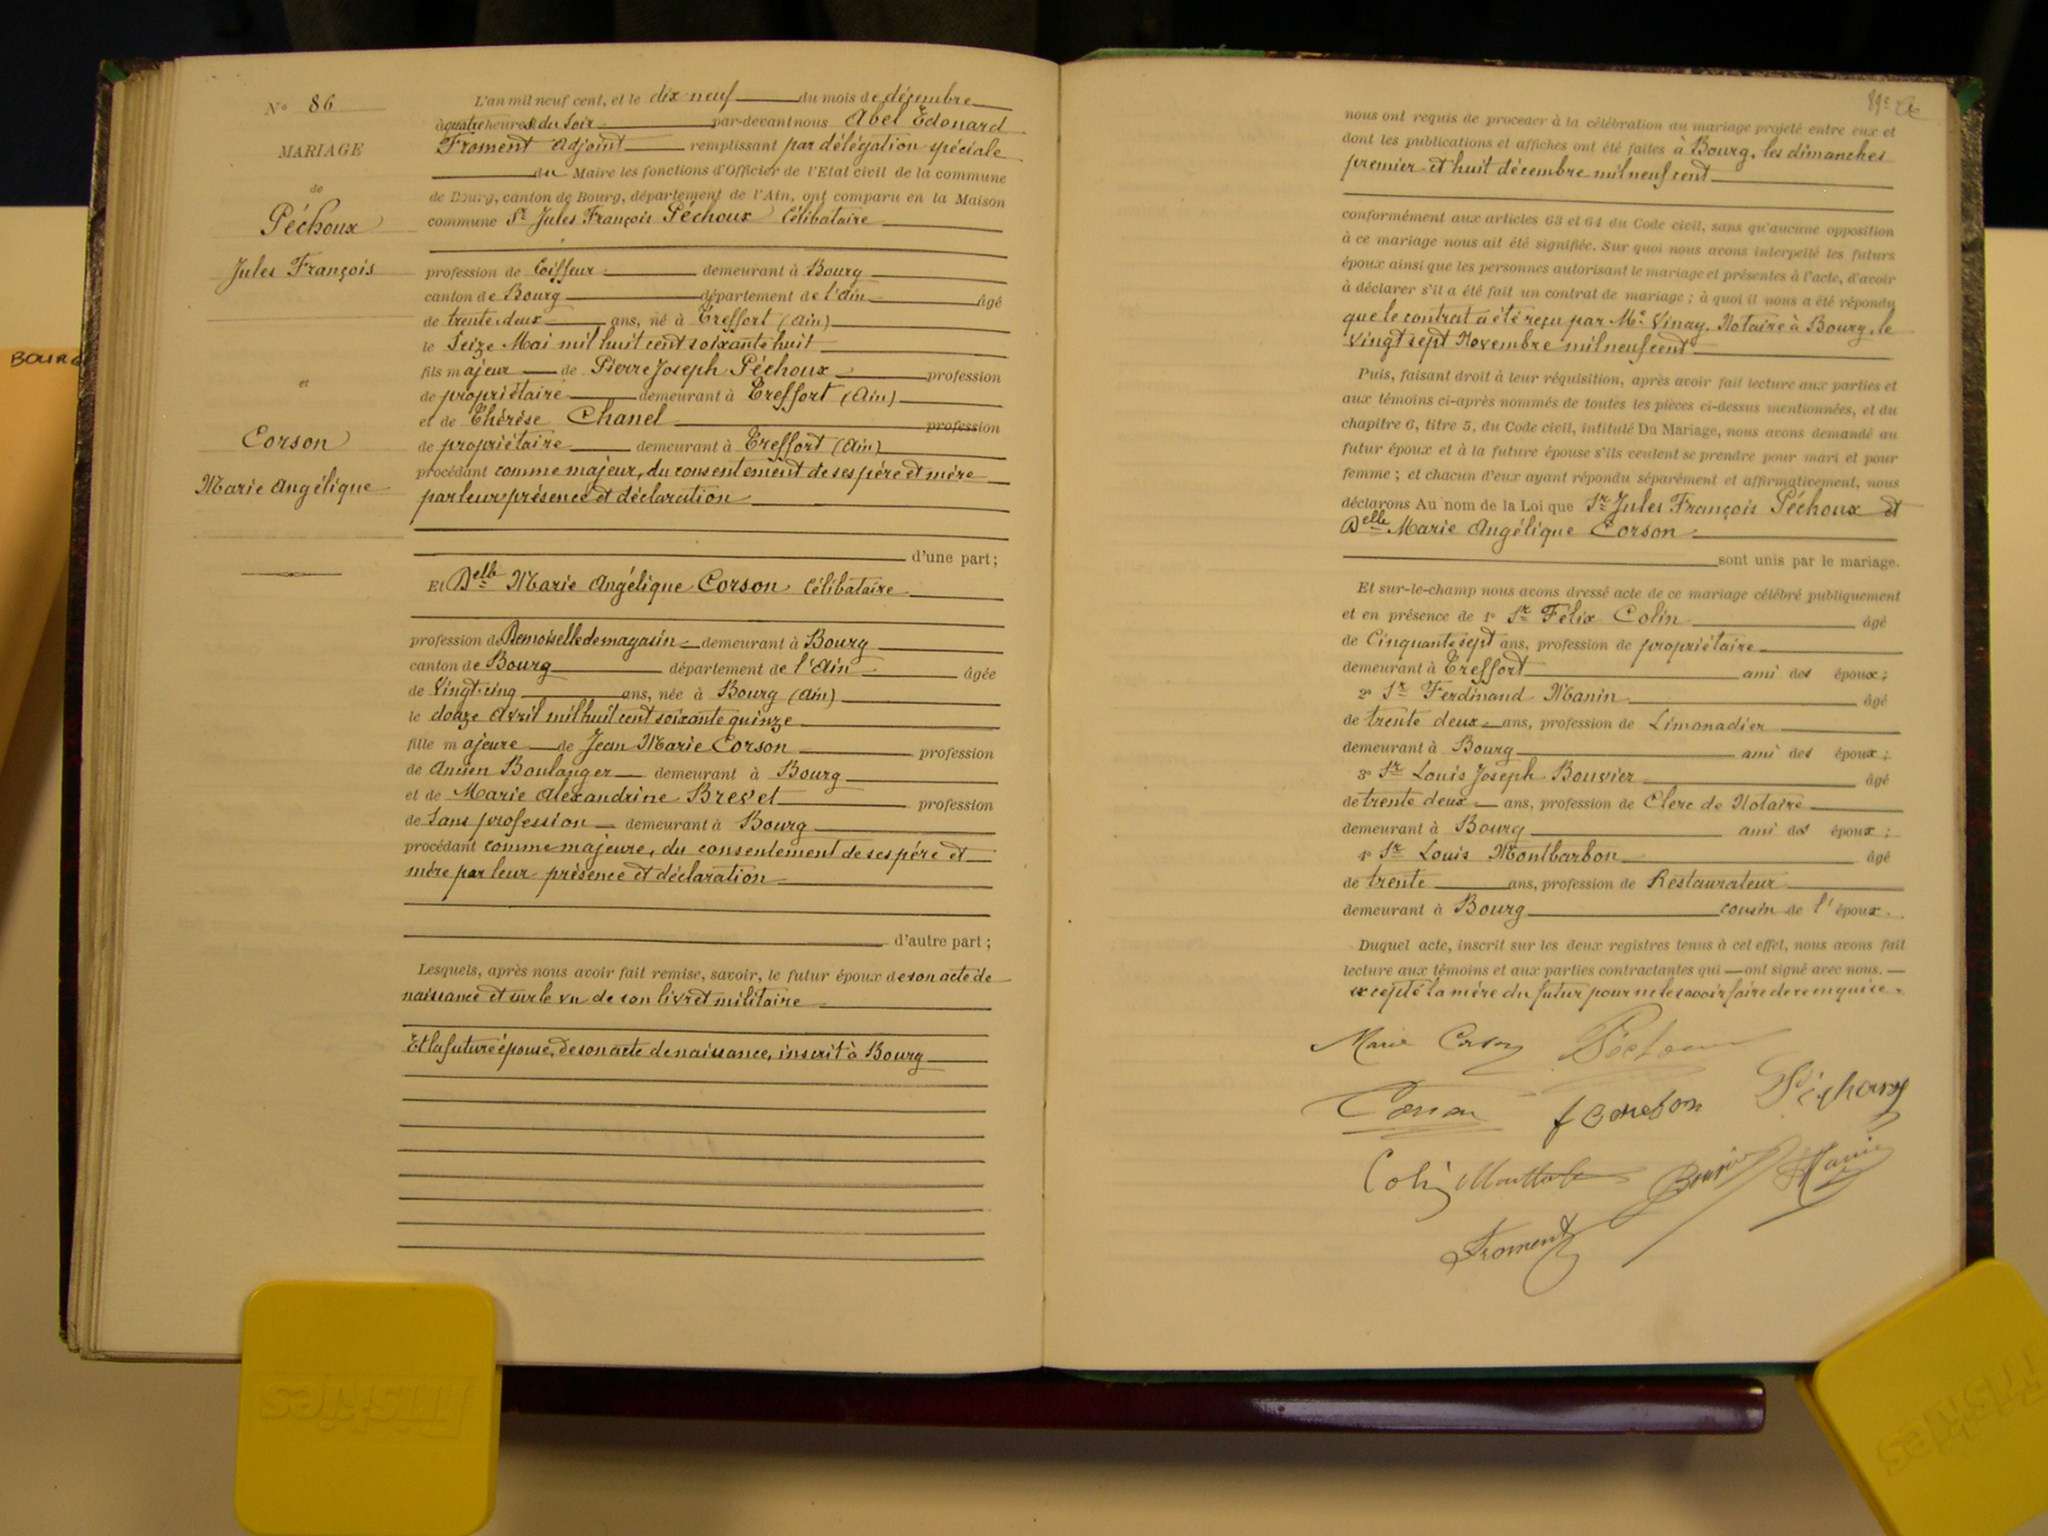 BOURG
N° 86
MARIAGE
de
Péchoux
Jules François
et
Corson
Marie Angélique
L'an mil neuf cent, et le dix neuf du mois de décembre
à quatre heures du soir par-devant nous Abel Edouard
Froment Adjoint remplissant par délégation spéciale
du Maire les fonctions d'Officier de l'Etat civil de la commune
de Bourg, canton de Bourg, département de l'Ain, ont comparu en la Maison
commune Sr Jules François Péchoux Célibataire
profession de Coiffeur demeurant à Bourg
canton de Bourg département de l'Ain âgé
de trente deux ans, né à Treffort (Ain)
le Seize Mai mil huit cent soixante huit
fils majeur de Pierre Joseph Péchoux profession
de propriétaire demeurant à Treffort (Ain)
et de Thérèse Chanel profession
de propriétaire demeurant à Treffort (Ain)
procédant comme majeur, du consentement de ses père et mère
par leur présence et déclaration
d'une part;
Et Delle Marie Angélique Corson Célibataire
profession de Demoiselle de magasin demeurant à Bourg
canton de Bourg département de l'Ain âgée
de Vingt-cinq ans, née à Bourg (Ain)
le douze Avril mil huit cent soixante quinze
fille majeure de Jean Marie Corson profession
de Ancien Boulanger demeurant à Bourg
et de Marie Alexandrine Brevet profession
de Sans profession demeurant à Bourg
procédant comme majeure, du consentement de ses père et
mère par leur présence et déclaration
d'autre part;
Lesquels, après nous avoir fait remise, savoir, le futur époux de son acte de
naissance et sur le vu de son livret militaire
Et la future épouse, de son acte de naissance, inscrit à Bourg
nous ont requis de procéder à la célébration du mariage projeté entre eux et
dont les publications et affiches ont été faites à Bourg, les dimanches
premier et huit décembre mil neuf cent
conformément aux articles 63 et 64 du Code civil, sans qu'aucune opposition
à ce mariage nous ait été signifiée. Sur quoi nous avons interpellé les futurs
époux ainsi que les personnes autorisant le mariage et présentes à l'acte, d'avoir
à déclarer s'il a été fait un contrat de mariage; à quoi il nous a été répondu
que le contrat a été reçu par Me Vinay, Notaire à Bourg, le
Vingt sept Novembre mil neuf cent
Puis, faisant droit à leur réquisition, après avoir fait lecture aux parties et
aux témoins ci-après nommés de toutes les pièces ci-dessus mentionnées, et du
chapitre 6, titre 5, du Code civil, intitulé Du Mariage, nous avons demandé au
futur époux et à la future épouse s'ils veulent se prendre pour mari et pour
femme; et chacun d'eux ayant répondu séparément et affirmativement, nous
déclarons Au nom de la Loi que Sr Jules François Péchoux et
Delle Marie Angélique Corson
sont unis par le mariage.
Et sur-le-champ nous avons dressé acte de ce mariage célébré publiquement
et en présence de 1° Sr Félix Colin âgé
de Cinquante sept ans, profession de propriétaire
demeurant à Treffort ami des époux;
2° Sr Ferdinand Manin âgé
de trente deux ans, profession de Limonadier
demeurant à Bourg ami des époux;
3° Sr Louis Joseph Bouvier âgé
de trente deux ans, profession de Clerc de Notaire
demeurant à Bourg ami des époux;
4° Sr Louis Montbarbon âgé
de trente ans, profession de Restaurateur
demeurant à Bourg cousin de l'époux.
Duquel acte, inscrit sur les deux registres tenus à cet effet, nous avons fait
lecture aux témoins et aux parties contractantes qui ont signé avec nous.
excepté la mère du futur pour ne le savoir faire de ce enquise.
Marie Corson Péchoux
Corson Péchoux
Colin Bouvier Manin
Froment